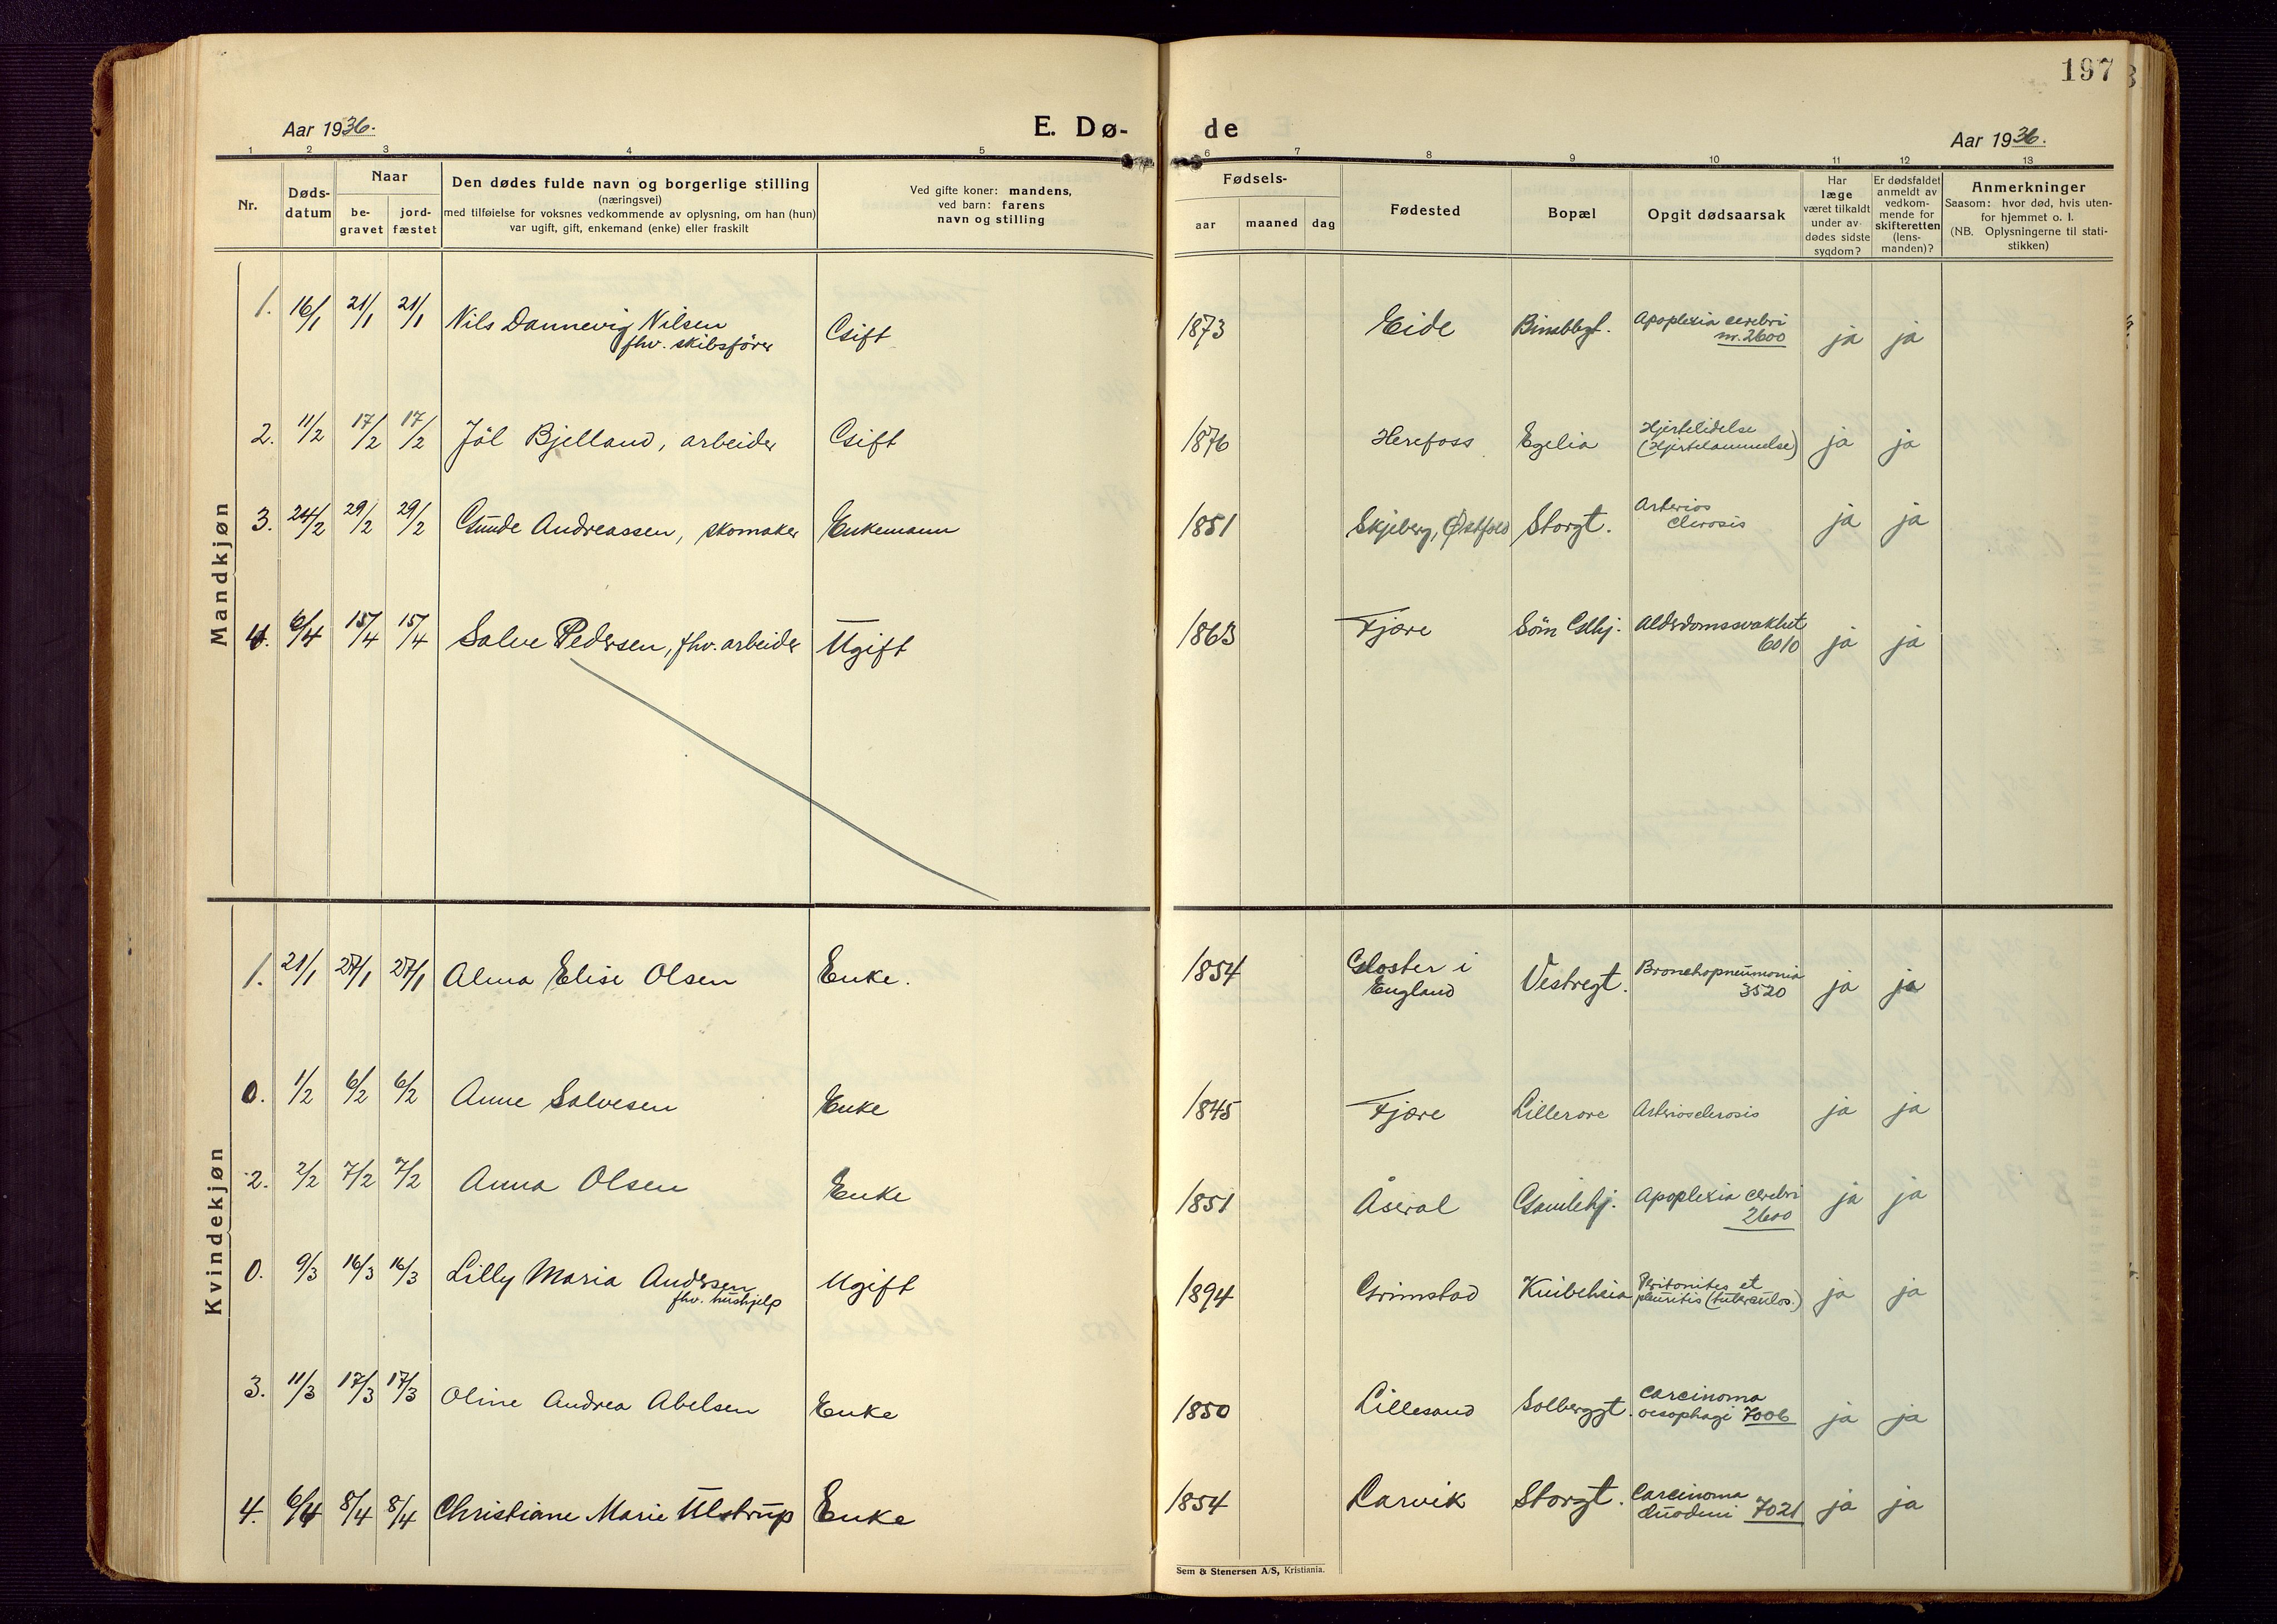 197
Aar 1936.
E. Dø-
de
Aar 1936.
1 2 3 4 5 6 7 8 9 10 11 12 13
Nr.
Døds-
datum
Naar
be-
gravet
jord-
fæstet
Den dødes fulde navn og borgerlige stilling
(næringsvei)
med tilføielse for voksnes vedkommende av oplysning, om han (hun)
var ugift, gift, enkemand (enke) eller fraskilt
Ved gifte koner: mandens,
ved barn: farens
navn og stilling
Fødsels-
aar maaned dag
Fødested
Bopæl
Opgit dødsaarsak
Har
læge
været tilkaldt
under av-
dødes sidste
sygdom?
Er dødsfaldet
anmeldt av
vedkom-
mende for
skifteretten
(lens-
manden)?
Anmerkninger
Saasom: hvor død, hvis uten-
for hjemmet o. l.
(NB. Oplysningerne til stati-
stikken)
Mandkjøn
1. 16/1 21/1 21/1 Nils Dannevig Nilsen
fhv. skibsfører
Gift 1873 Eide Apoplexia cerebri
nr. 2600
ja ja
2. 11/2 17/2 17/2 Jøl Bjelland, arbeider Gift 1876 Herefoss Egelia Hjertelidelse
(Hjertelammelse)
ja ja
3. 24/2 29/2 29/2 Gunde Andreassen, skomaker Enkemann 1851 Skjeberg, Østfold Storgt. Arterios
clerosis
ja ja
4. 6/4 15/4 15/4 Salve Pedersen, fhv. arbeider Ugift 1863 Fjære Søm Glhj. Alderdomssvakhet
6010
ja ja
Kvindekjøn
1. 21/1 27/1 27/1 Alma Elise Olsen Enke. 1854 Gloster i
England
Vestregt. Bronchopneumonia
3520
ja ja
0. 1/2 6/2 6/2 Anne Salvesen Enke 1845 Fjære Lillerore Arteriosclerosis ja ja
2. 2/2 7/2 7/2 Anna Olsen Enke 1851 Åseral Gamlehj. Apoplexia cerebri
2600
ja ja
0. 9/3 16/3 16/3 Lilly Maria Andersen
fhv. hushjelp
Ugift 1894 Grimstad Kuibeheia Peritonites et
pleuritis (tuberculos.)
ja ja
3. 11/3 17/3 17/3 Oline Andrea Abelsen Enke 1850 Lillesand Solberggt. Carcinoma
oesophagi 7006
ja ja
4. 6/4 8/4 8/4 Christiane Marie Ulstrup Enke 1854 Larvik Storgt. Carcinoma
duodeni 7021
ja ja
Sem & Stenersen A/S, Kristiania.